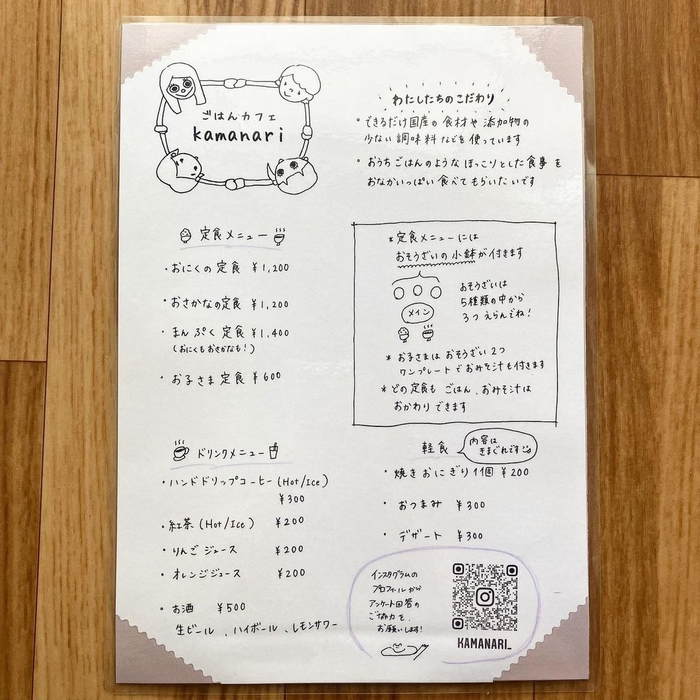 ごはんカフェ
kamanari
わたしたちのこだわり
・できるだけ国産の食材や添加物の
少ない調味料などを使っています
・おうちごはんのような ほっこりとした食事を
おなかいっぱい食べてもらいたいです
定食メニュー
・おにくの定食 ¥1,200
・おさかなの定食 ¥1,200
・まんぷく定食 ¥1,400
(おにくもおさかなも!)
・お子さま定食 ¥600
*定食メニューには
おそうざいの小鉢が付きます
メイン
おそうざいは
5種類の中から
3つえらんでね!
*お子さまはおそうざい2つ
ワンプレートでおみそ汁も付きます
*どの定食も ごはん、おみそ汁は
おかわりできます
ドリンクメニュー
・ハンドドリップコーヒー(Hot/Ice)
¥300
・紅茶(Hot/Ice) ¥200
・りんごジュース ¥200
・オレンジジュース ¥200
・お酒 ¥500
生ビール、ハイボール、レモンサワー
軽食
内容は
きまぐれです
・焼きおにぎり1個 ¥200
・おつまみ ¥300
・デザート ¥300
インスタグラムの
プロフィールから
アンケート回答の
ご協力を
お願いします!
KAMANARI_